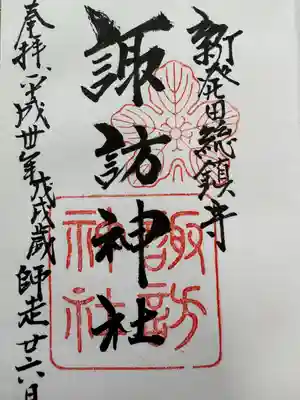 新発田総鎮守
諏訪神社
奉拝 平成卅年戊戌歳師走廿六日
諏訪
神社